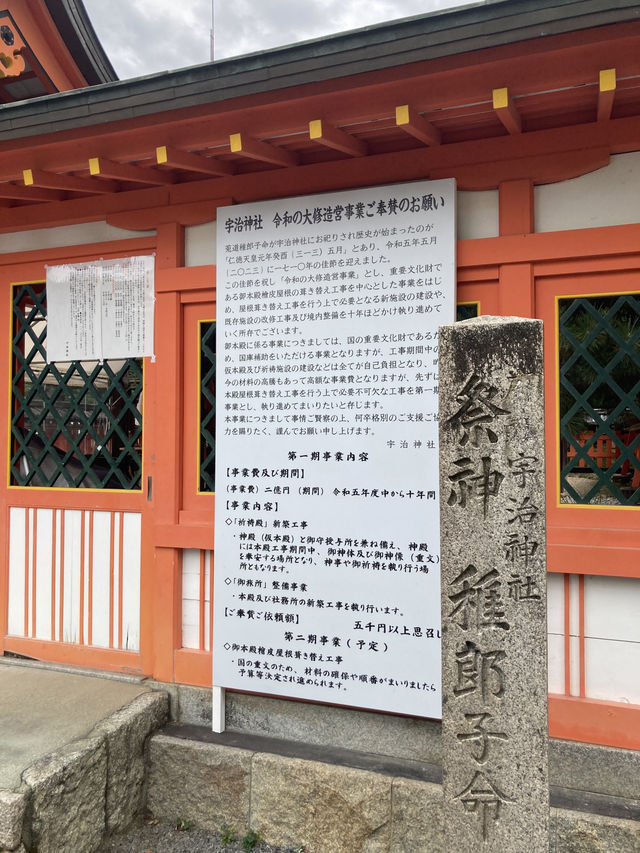 宇治神社　令和の大修造営事業ご奉賛のお願い
菟道稚郎子命が宇治神社にお祀りされ歴史が始まったのが
「仁徳天皇元年癸酉（三一三）五月」とあり、令和五年五月
（二〇二三）に一七一〇年の佳節を迎えました。
この佳節を祝し「令和の大修造営事業」とし、重要文化財で
ある御本殿檜皮屋根の葺き替え工事を中心とした事業をはじ
め、屋根葺き替え工事を行う上で必要となる新施設の建設や、
既存施設の改修工事及び境内整備を十年ほどかけ執り進めて
いく所存でございます。
御本殿に係る事業につきましては、国の重要文化財であるた
め、国庫補助をいただける事業となりますが、工事期間中の
仮本殿及び祈祷施設の建設などは全てが自己負担となり、昨
今の材料の高騰もあって高額な事業費となりますが、先ずは
本殿屋根葺き替え工事を行う上で必要不可欠な工事を第一期
事業とし、執り進めてまいりたいと存じます。
本事業につきまして事情ご賢察の上、何卒格別のご支援ご協
力を賜りたく、謹んでお願い申し上げます。
宇治神社
第一期事業内容
【事業費及び期間】
（事業費）二億円（期間）令和五年度中から十年間
【事業内容】
◇「祈祷殿」新築工事
・神殿（仮本殿）と御守授与所を兼ね備え、神殿
には本殿工事期間中、御神体及び御神像（重文）
を奉安する場所となり、神事や御祈祷を執り行う場
所ともなります。
◇「御旅所」整備事業
・本殿及び社務所の新築工事を執り行います。
【ご奉賛ご依頼額】　五千円以上思召し
第二期事業（予定）
◇御本殿檜皮屋根葺き替え工事
・国の重文のため、材料の確保や順番がまいりましたら
予算等決定され進められます。
宇治神社
祭神　稚郎子命